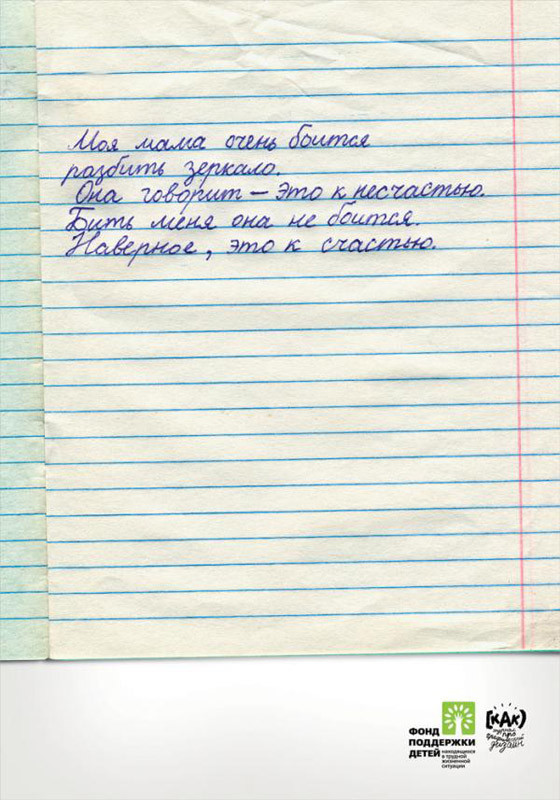 Моя мама очень боится
разбить зеркало.
Она говорит — это к несчастью.
Бить меня она не боится.
Наверное, это к счастью.
ФОНД
ПОДДЕРЖКИ
ДЕТЕЙ
находящихся
в трудной
жизненной
ситуации
[кАк)
журнал
про
графический
дизайн